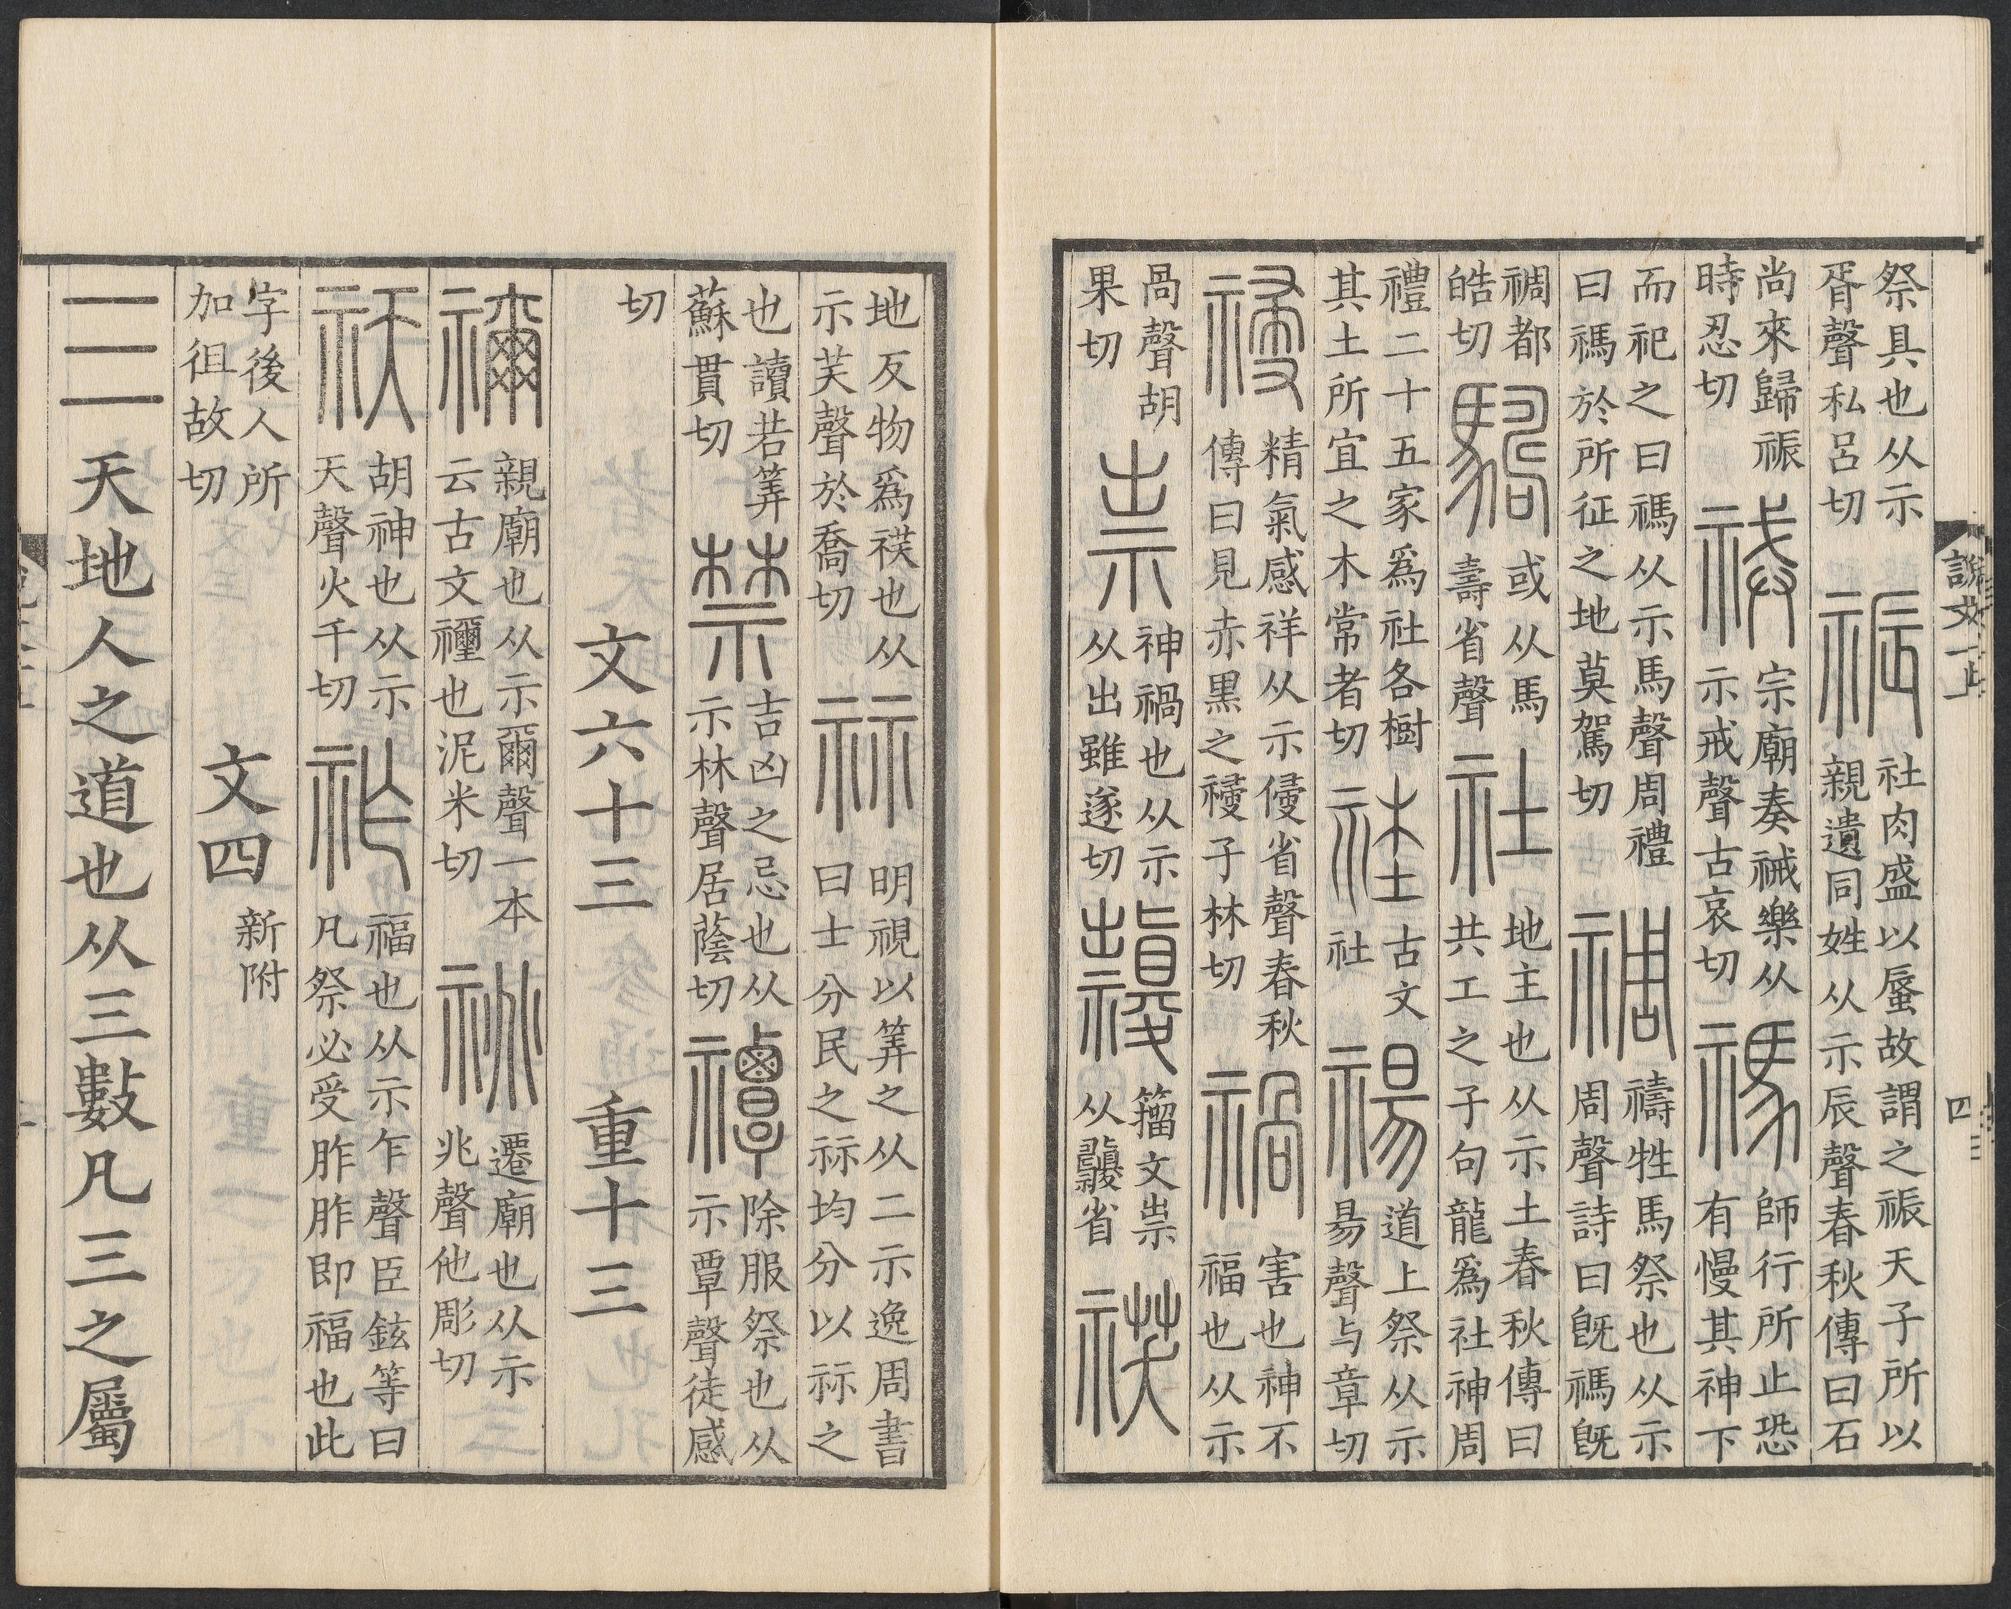 說文一上
四
祭具也从示
胥聲私呂切
祳
社肉盛以蜃故謂之祳天子所以
親遺同姓从示辰聲春秋傳曰石
尚來歸祳
時忍切
祴
宗廟奏祴樂从
示戒聲古哀切
禡
師行所止恐
有慢其神下
而祀之曰禡从示馬聲周禮
曰禡於所征之地莫駕切
禂
禱牲馬祭也从示
周聲詩曰旣禡旣
禂都
皓切
或从馬
壽省聲
社
地主也从示土春秋傳曰
共工之子句龍爲社神周
禮二十五家爲社各樹
其土所宜之木常者切
古文
社
禓
道上祭从示
昜聲与章切
祲
精氣感祥从示侵省聲春秋
傳曰見赤黑之祲子林切
禍
害也神不
福也从示
咼聲胡
果切
祟
神禍也从示
从出雖遂切
籒文祟
从省
䄏
地反物爲䄏也从
示芺聲於喬切
祘
明視以筭之从二示逸周書
曰士分民之祘均分以祘之
也讀若筭
蘇貫切
禁
吉凶之忌也从
示林聲居蔭切
禫
除服祭也从
示覃聲徒感
切
文六十三　重十三
禰
親廟也从示爾聲一本
云古文禋也泥米切
祧
遷廟也从示
兆聲他彫切
祆
胡神也从示
天聲火千切
祚
福也从示乍聲臣鉉等曰
凡祭必受胙胙即福也此
字後人所
加徂故切
文四
新附
三
天地人之道也从三數凡三之屬